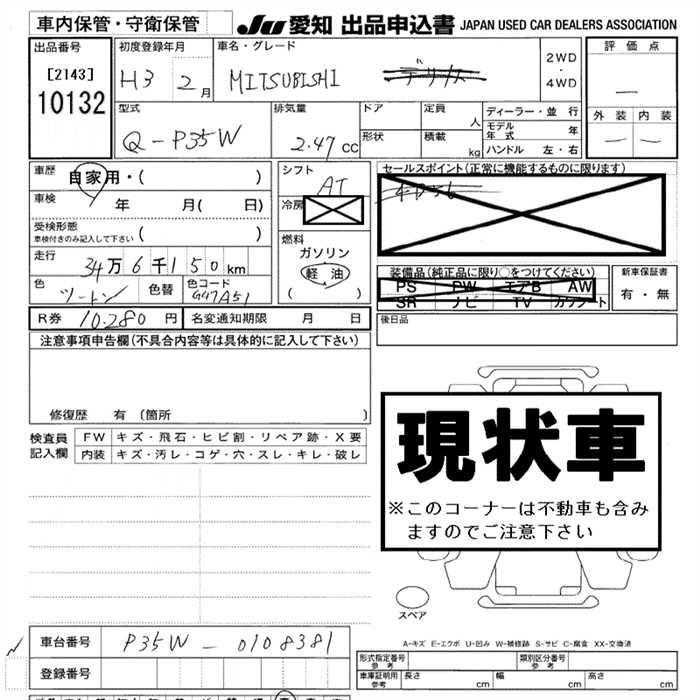 車内保管・守衛保管
JU 愛知 出品申込書 JAPAN USED CAR DEALERS ASSOCIATION
出品番号 初度登録年月 車名・グレード 評価点
[2143]
10132
H3 2月 MITSUBISHI デリカ 2WD・4WD
型式 排気量 ドア 定員 人 ディーラー・並行
Q-P35W 2.47cc 形状 積載 kg モデル年式 年
ハンドル 左・右
外装 内装
車歴 自家用・( )
シフト AT
セールスポイント(正常に機能するものに限ります)
車検 年 月( 日)
冷房
受検形態
車検付きのみ記入して下さい ( )
燃料
ガソリン
軽油
( )
走行 34万6千150km
装備品(純正品に限り○をつけてください)
PS PW エアB AW
SR ナビ TV カワシート
新車保証書
有・無
色 ツートン 色替 色コード
R券 10,280円 名変通知期限 月 日
後日品
注意事項申告欄(不具合内容等は具体的に記入して下さい)
修復歴 有 (箇所 )
検査員記入欄
FW キズ・飛石・ヒビ割・リペア跡・X要
内装 キズ・汚レ・コゲ・穴・スレ・キレ・破レ
現状車
※このコーナーは不動車も含み
ますのでご注意下さい
スペア
A-キズ E-エクボ U-凹み W-補修跡 S-サビ C-腐食 XX-交換済
車台番号 P35W-0108381
登録番号
形式指定番号 参考 類別区分番号 参考
車庫証明用 参考 長さ cm 幅 cm 高さ cm